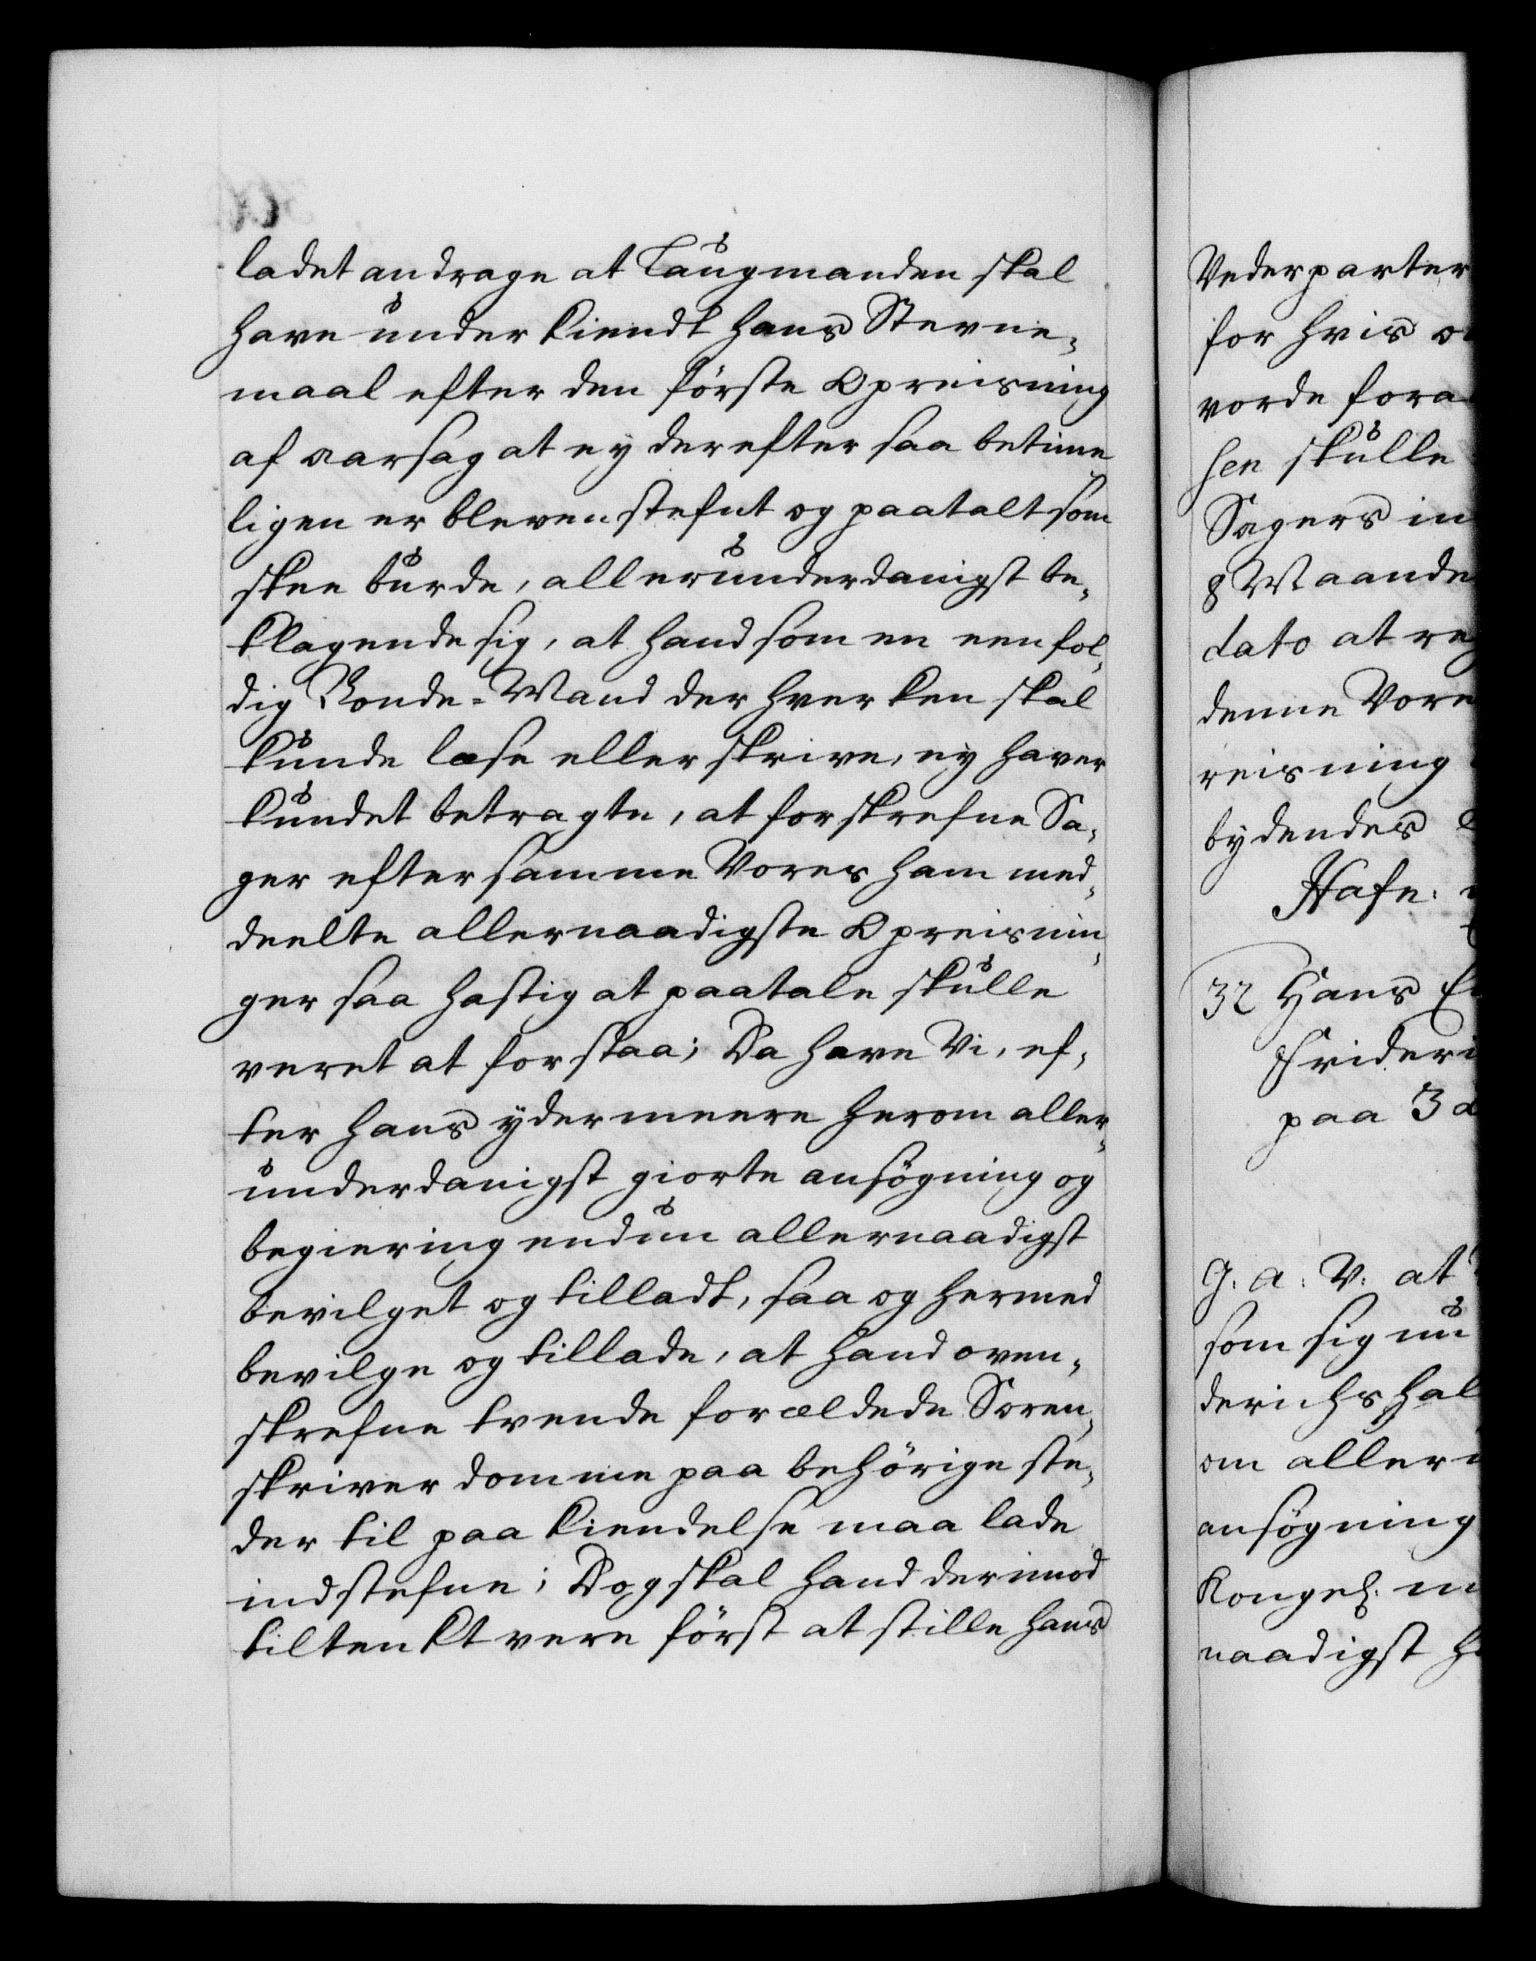 ladet andrage at Laugmanden skal
have under kiendt hans Stevne-
maal efter den förste Opreisning
af aarsag at ey derefter saa betime
ligen er bleven stefnt og paatalt som
skee burde, allerunderdanigst be-
klagende sig, at hand som en eenfol-
dig Bonde-Mand der hverken skal
kunde læse eller skrive, ey haver
kundet betragte, at forskrefne Sa-
ger efter samme Vores ham med-
deelte allernaadigste Opreisnin-
ger saa hastig at paatale skulle
veret at forstaa; Da have Vi, ef-
ter hans ydermeere herom aller-
underdanigst giorte ansögning og
begiering endnu allernaadigst
bevilget og tilladt, saa og hermed
bevilge og tillade, at hand oven-
skrefne tvende forældede Soren-
skriver domme paa behörige ste-
der til paa kiendelse maa lade
indstefne; Dog skal hand derimod
tiltenkt vere först at stille hans
Vederparter
for hvis
vorde
hen skulle
Sagers in
8 Maande
dato at
denne Vore
reisning
bydendes
Hafn:
32 Hans
Frideri
paa 3
G: a: V: at
som sig nu
derichshal
om aller
ansögning
Kongel:
naadigst